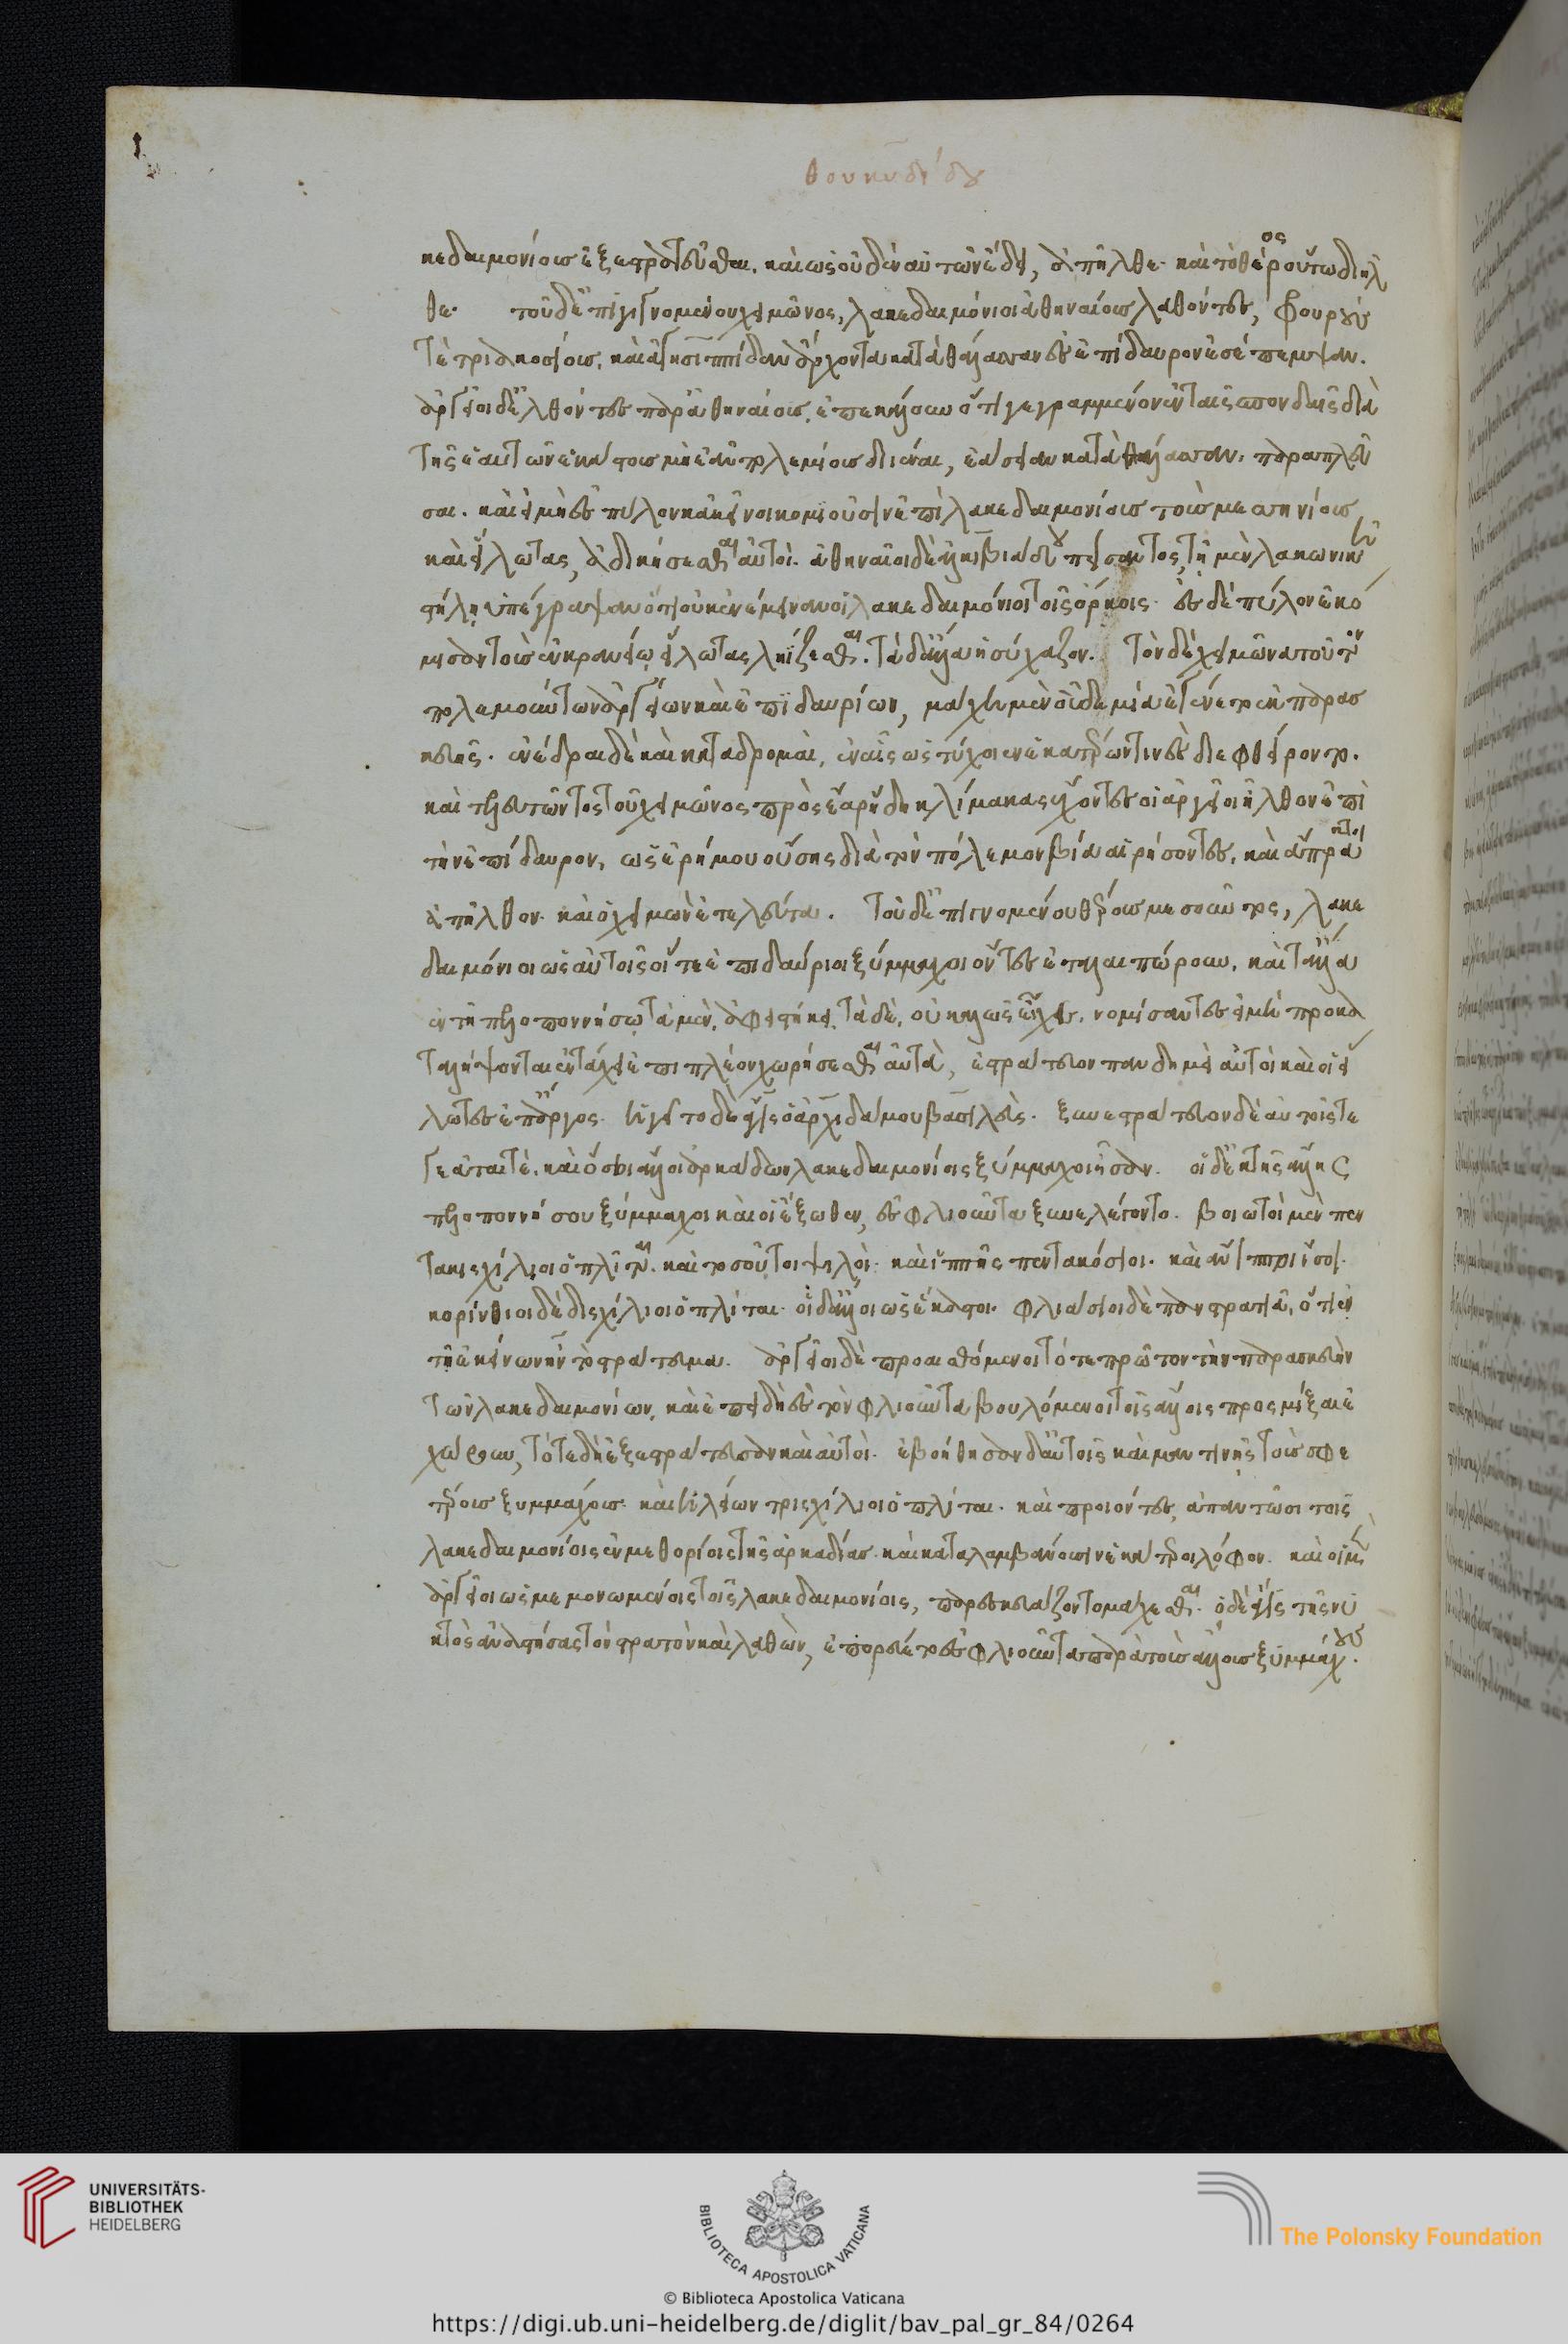 θουκυδίδου
κεδαιμονίους ἐξεστρατεῦσθαι. καὶ ὡς οὐδὲν αὐτῶν ἔδει, ἀπῆλθε. καὶ τὸ θέρος οὕτω διῆλ
θε. τοῦ δ' ἐπιγιγνομένου χειμῶνος, λακεδαιμόνιοι ἀθηναίους λαθόντες, φρουρούς
τὲ τριακοσίους, καὶ ἀγησιππίδαν ἄρχοντα κατὰ θάλασσαν ἐς ἐπίδαυρον ἐσέπεμψαν.
ἀργεῖοι δ' ἐλθόντες παρ' ἀθηναίους, ἐπεκάλουν ὅτι γεγραμμένον ἐν ταῖς σπονδαῖς διὰ
τῆς ἑαυτῶν ἑκάστους μὴ ἐᾶν πολεμίους διιέναι, ἐάσειαν κατὰ θάλασσαν παραπλεῦ
σαι. καὶ εἰ μὴ ἐς πύλον κἀκεῖνοι κομιοῦσιν ἐπὶ λακεδαιμονίους τοὺς μεσσηνίους
καὶ εἵλωτας, ἀδικήσεσθαι αὐτοί. ἀθηναῖοι δὲ ἀλκιβιάδου πείσαντος, τῇ μὲν λακωνικῇ
στήλῃ ὑπέγραψαν ὅτι οὐκ ἐνέμειναν οἱ λακεδαιμόνιοι τοῖς ὅρκοις. ἐς δὲ πύλον ἐκό
μισαν τοὺς ἐν κρανίῳ εἵλωτας ληίζεσθαι. τὰ δ' ἄλλα ἡσύχαζον. τὸν δὲ χειμῶνα τοῦτον
πολεμούντων ἀργείων καὶ ἐπιδαυρίων, μάχη μὲν οὐδεμία ἐγένετο ἐκ παρασ
κευῆς. ἐνέδραι δὲ καὶ καταδρομαὶ, ἐν αἷς ὡς τύχοιεν ἑκατέρων τινὲς διεφθείροντο.
καὶ τελευτῶντος τοῦ χειμῶνος πρὸς ἔαρ ἤδη κλίμακας ἔχοντες οἱ ἀργεῖοι ἦλθον ἐπὶ
τὴν ἐπίδαυρον, ὡς ἐρήμου οὔσης διὰ τὸν πόλεμον βίᾳ αἱρήσοντες. καὶ ἄπρακτοι
ἀπῆλθον. καὶ ὁ χειμὼν ἐτελεύτα. τοῦ δ' ἐπιγινομένου θέρους μεσοῦντος, λακε
δαιμόνιοι ὡς αὐτοῖς οἵ τε ἐπιδαύριοι ξύμμαχοι ὄντες ἐταλαιπώρουν. καὶ τἄλλα
ἐν τῇ πελοποννήσῳ τὰ μὲν, ἀφεστήκει, τὰ δὲ, οὐ καλῶς εἶχε, νομίσαντες εἰ μὴ προκα
ταλήψονται ἐν τάχει ἐπὶ πλέον χωρήσεσθαι αὐτὰ, ἐστράτευον πανδημεὶ αὐτοὶ καὶ οἱ εἵ
λωτες ἐπ' ἄργος. ἡγεῖτο δὲ ἆγις ὁ ἀρχιδάμου βασιλεύς. ξυνεστράτευον δὲ αὐτοῖς τε
γεᾶταί τε. καὶ ὅσοι ἄλλοι ἀρκάδων λακεδαιμονίοις ξύμμαχοι ἦσαν. οἱ δ' ἐκ τῆς ἄλλης
πελοποννήσου ξύμμαχοι καὶ οἱ ἔξωθεν, ἐς φλιοῦντα ξυνελέγοντο. βοιωτοὶ μὲν πεν
τακισχίλιοι ὁπλῖται. καὶ τοσοῦτοι ψιλοί. καὶ ἱππῆς πεντακόσιοι. καὶ ἄμιπποι ἴσοι.
κορίνθιοι δὲ δισχίλιοι ὁπλίται. οἱ δ' ἄλλοι ὡς ἕκαστοι. φλιάσιοι δὲ πανστρατιᾷ, ὅτι ἐν
τῇ ἐκείνων ἦν τὸ στράτευμα. ἀργεῖοι δὲ προαισθόμενοι τό τε πρῶτον τὴν παρασκευὴν
τῶν λακεδαιμονίων, καὶ ἐπειδὴ ἐς τὸν φλιοῦντα βουλόμενοι τοῖς ἄλλοις προσμίξαι ἐ
χώρουν, τότε δὴ ἐξεστράτευσαν καὶ αὐτοί. ἐβοήθησαν δ' αὐτοῖς καὶ μαντινῆς τοὺς σφε
τέρους ξυμμάχους. καὶ ἠλείων τρισχίλιοι ὁπλίται. καὶ προιόντες, ἀπαντῶσι τοῖς
λακεδαιμονίοις ἐν μεθορίοις τῆς ἀρκαδίας. καὶ καταλαμβάνουσιν ἑκάτεροι λόφον. καὶ οἱ μὲν
ἀργεῖοι ὡς μεμονωμένοις τοῖς λακεδαιμονίοις, παρεσκευάζοντο μάχεσθαι. ὁ δὲ ἆγις τῆς νυ
κτὸς ἀναστήσας τὸν στρατὸν καὶ λαθὼν, ἐπορεύετο ἐς φλιοῦντα παρὰ τοὺς ἄλλους ξυμμάχους.
UNIVERSITÄTS-
BIBLIOTHEK
HEIDELBERG
BIBLIOTECA APOSTOLICA VATICANA
The Polonsky Foundation
© Biblioteca Apostolica Vaticana
https://digi.ub.uni-heidelberg.de/diglit/bav_pal_gr_84/0264